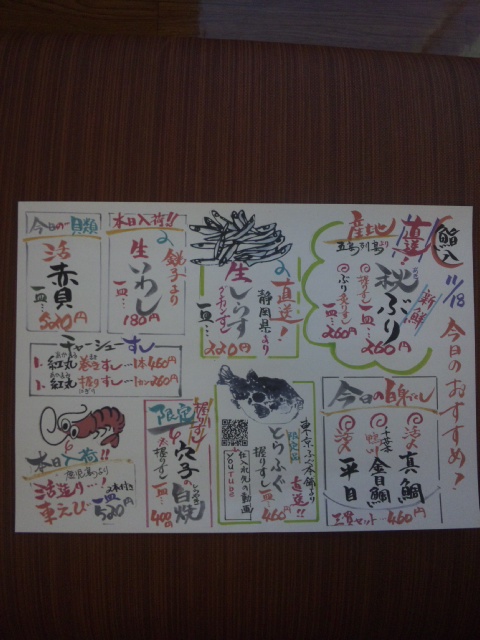 11/18 今日のおすすめ!
産地直送!
五島列島より
新鮮
秘ぶり
握りすし一皿…260円
ぶり炙りすし一皿…260円
直送!
静岡県より
生しらす
グンカンすし
一皿…220円
本日入荷!!
銚子より
生いわし
一皿…180円
今日の貝類
活赤貝
一皿…520円
チャーシューすし
1. 紅丸巻きすし…1本460円
1. 紅丸握りすし…1コ260円
今日の白身すし
活〆真鯛
千葉
金目鯛
活〆平目
三貫セット…460円
東京ふぐ本舗より
直送!!
限定品
とらふぐ
握りすし一皿460円
仕入れ先の動画
YouTube
握りすし
限定
穴子の白焼
握りすし一皿…400円
本日入荷!!
鹿児島より
活〆り…!
車えび
2本付き
一皿520円